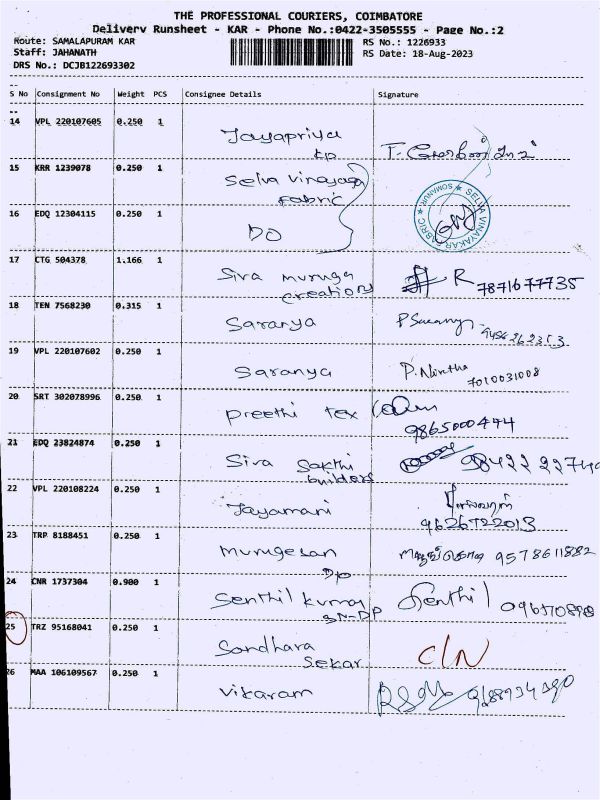 THE PROFESSIONAL COURIERS, COIMBATORE
Delivery Runsheet - KAR - Phone No.:0422-3505555 - Page No.:2
Route: SAMALAPURAM KAR RS No.: 1226933
Staff: JAHANATH RS Date: 18-Aug-2023
DRS No.: DCJB122693302
S No Consignment No Weight PCS Consignee Details Signature
14 VPL 220107605 0.250 1
Jayapriya
kp
15 KRR 1239078 0.250 1
Selva Vinayaga
Fabric
16 EDQ 12304115 0.250 1
DO
SELVA VINAYAKAR FABRIC ★ SOMANUR ★
17 CTG 504378 1.166 1
Siva muruga R 7871677735
creation
18 TEN 7568230 0.315 1
Saranya
19 VPL 220107602 0.250 1
Saranya P. Nivetha
7010031008
20 SRT 302078996 0.250 1
Preethi tex
9865000474
21 EDQ 23824874 0.250 1
Siva Sakthi
builders
22 VPL 220108224 0.250 1
Jayamani
9626722013
23 TRP 8188451 0.250 1
Murugesan 9578611882
Dp
24 CNR 1737304 0.900 1
Senthil kumar Senthil
SN-DP
25 TRZ 95168041 0.250 1
Sandhara C/N
Sekar
26 MAA 106109567 0.250 1
Vikaram